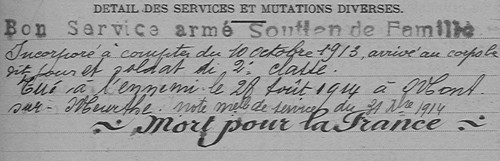 DETAIL DES SERVICES ET MUTATIONS DIVERSES.
Bon Service armé Soutien de Famille
Incorporé à compter du 10 octobre 1913, arrivé au corps le
dit jour et soldat de 2e classe.
Tué à l'ennemi le 28 Août 1914 à Mont
sur-Meurthe. note mle de service du 21 Xbre 1914
~ Mort pour la France ~